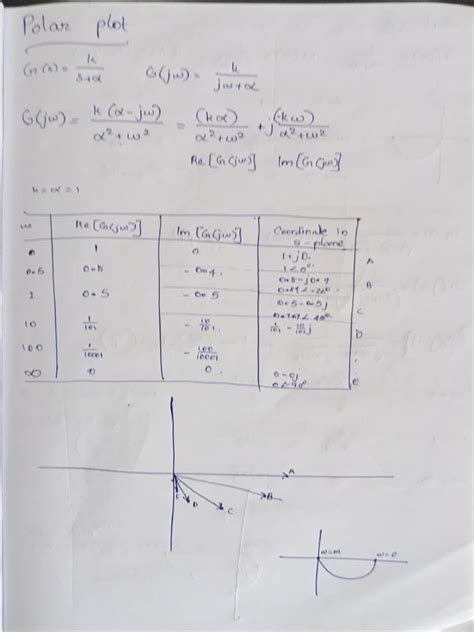 Polar plot
G(s) = k/(s+α)    G(jω) = k/(jω+α)
G(jω) = k(α-jω)/(α²+ω²) = (kα)/(α²+ω²) + j(-kω)/(α²+ω²)
Re[G(jω)]    Im[G(jω)]
k=α=1
ω    Re[G(jω)]    Im[G(jω)]    Coordinate in s-plane
0    1    0    1+j0.    A
1∠0°
0.5    0.8    -0.4.    B
1    0.5    -0.5    0.5-0.5j    C
10    1/101    -10/101    1/101 - 10/101 j    D
100    1/10001    -100/10001
∞    0    0.    0-0j    e
A
B
C
D
ω=∞    ω=0